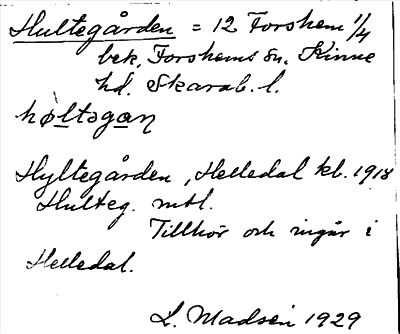 Hultegården = 12 Forshem 1/4
bek. Forshems sn. Kinne
hd. Skarab. l.
hø̀ltəgaɳ
Hyltegården, Helledal kb. 1918
Hulteg. mtl.
Tillhör och ingår i
Helledal.
L. Madsén 1929